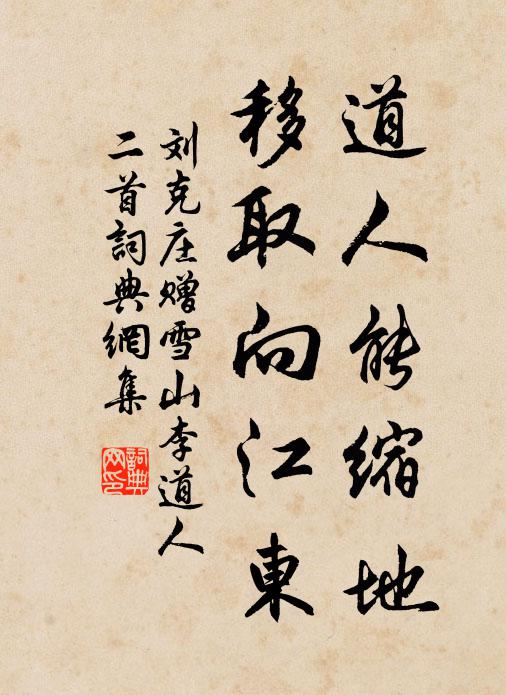 道人能缩地
移取向江東
刘克庄赠雪山李道人
二首詞典網集
詞典
网印